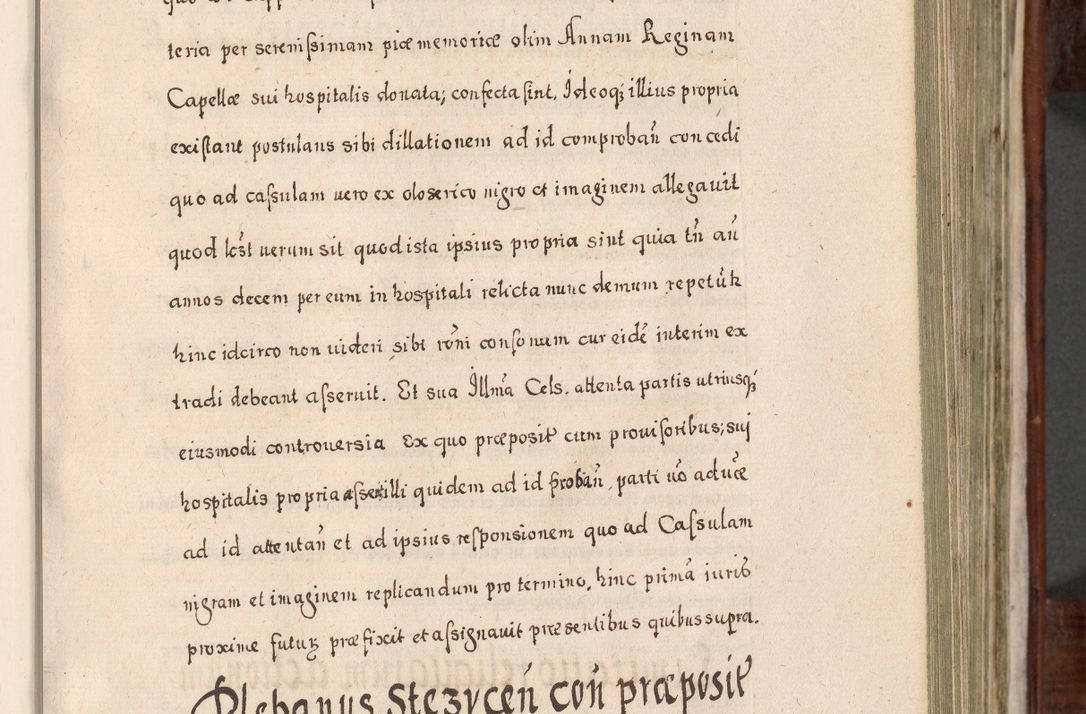 teria per serenißimam piæ memoriæ olim Annam Reginam
Capellæ sui hospitalis donata; confecta sint, Ideoq; illius propria
existant postulans sibi dillationem ad id comprobañ concedi
quo ad casulam vero ex oloserico nigro et imaginem allegavit
quod lc̃st uerum sit quod ista ipsius propria sint quia tñ añ
annos decem per eum in hospitali relicta nunc demum repetũtr
hinc idcirco non uideri sibi rõni consonum cur eidẽ interim ex
tradi debeant asseruit. Et sua Illmã Cels. attenta partis utriusq;
eiusmodi controuersia Ex quo præposit cum prouisoribus; sui
hospitalis propria asse illi quidem ad id probañ, parti uõ aduẽe
ad id attentañ et ad ipsius responsionem quo ad Casulam
nigram et imaginem replicandum pro termino, hinc primã iuris
proxime futuʒ præfixit et assignauit præsentibus quibus supra.
Plebanus Stezyceñ coñ præposit